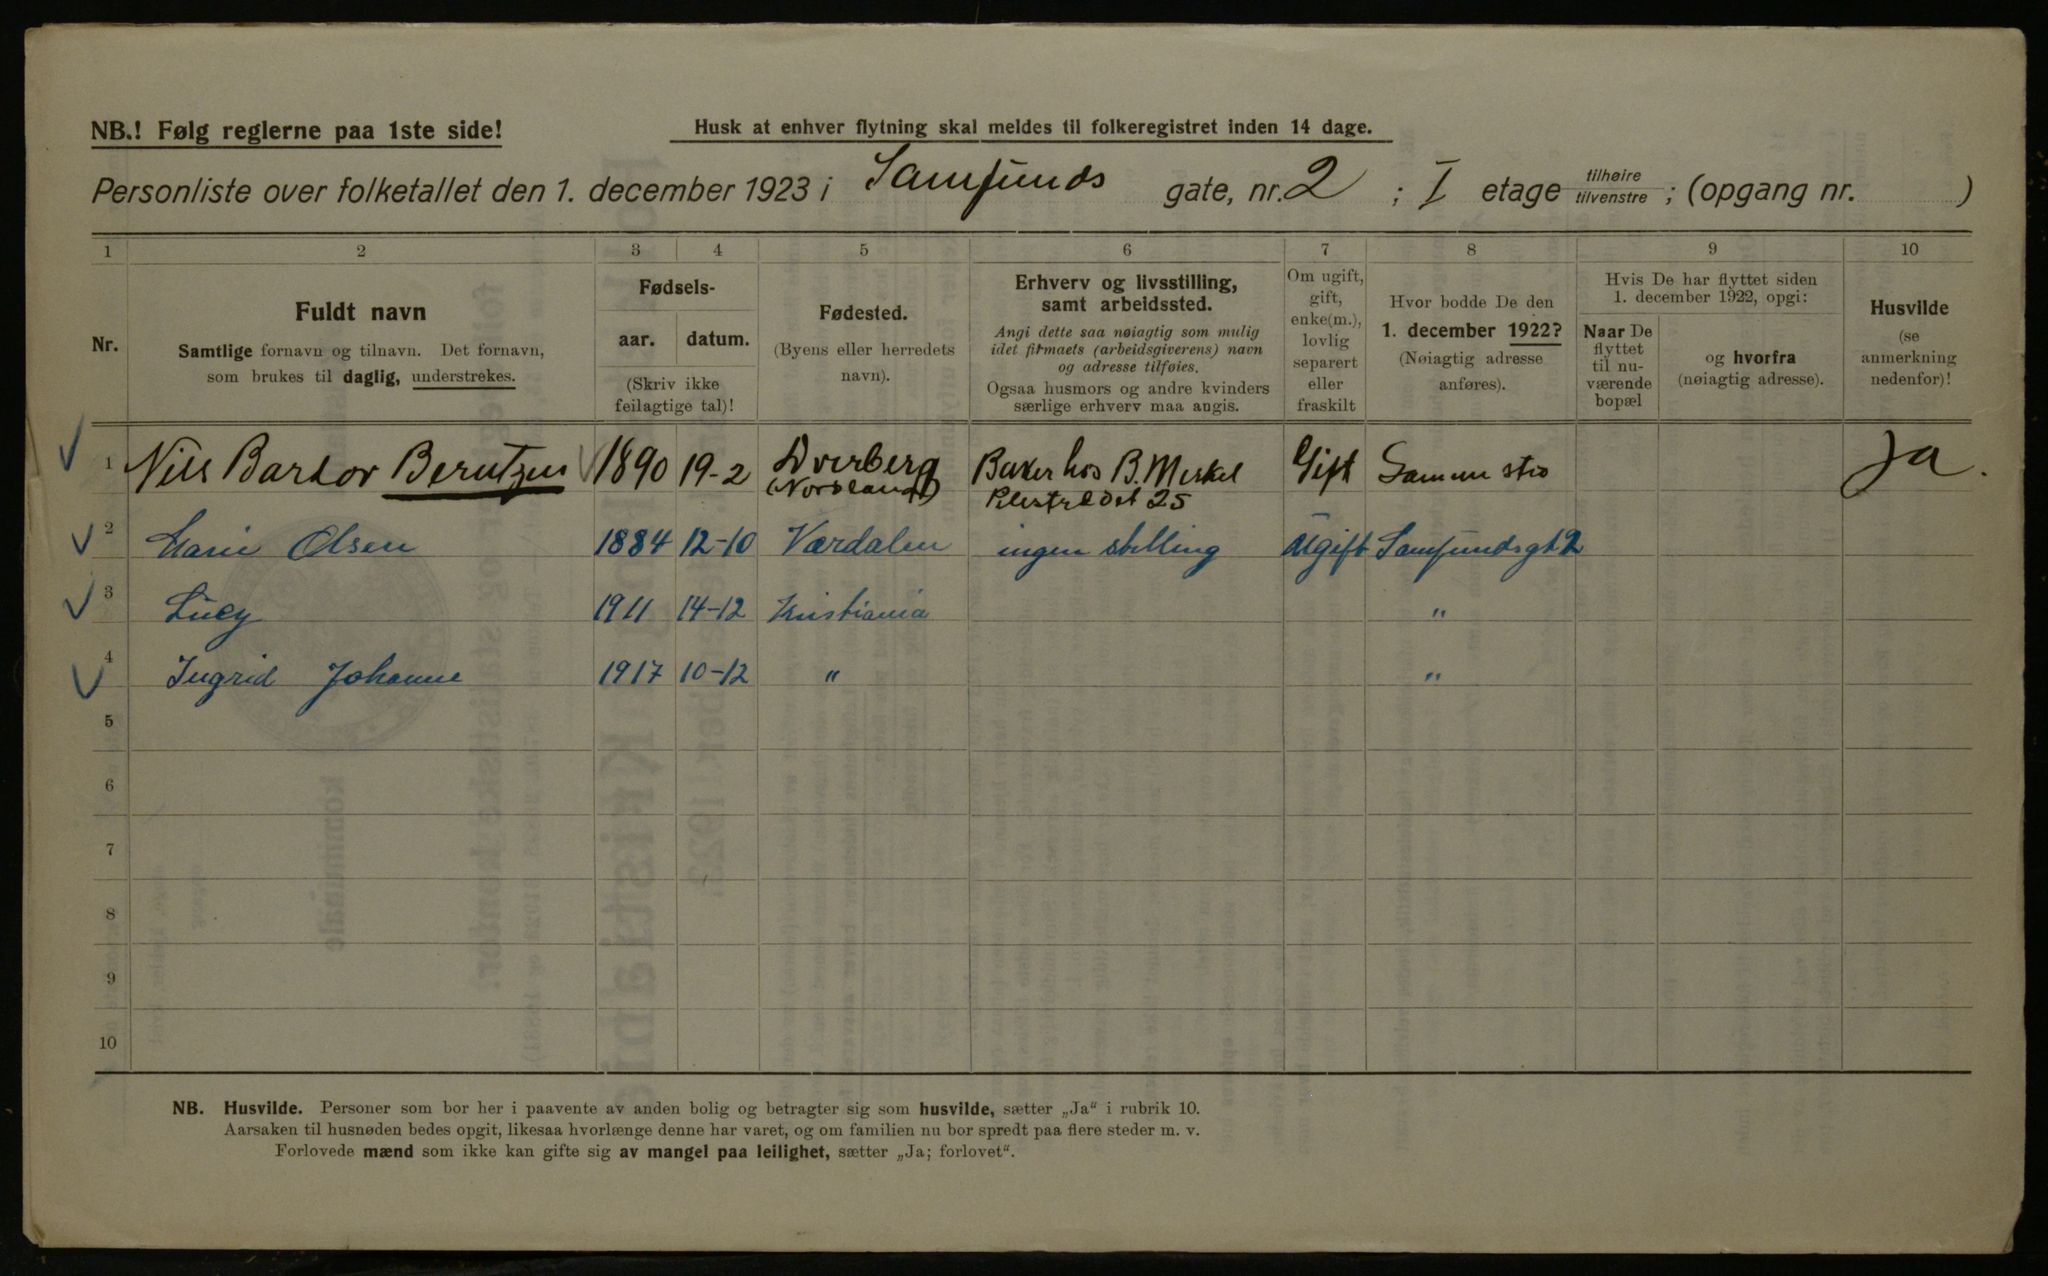 NB.! Følg reglerne paa 1ste side!
Husk at enhver flytning skal meldes til folkeregistret inden 14 dage.
Personliste over folketallet den 1. december 1923 i Samfunds gate, nr. 2 ; I etage tilhøire tilvenstre ; (opgang nr. )
1 2 3 4 5 6 7 8 9 10
Nr.
Fuldt navn
Samtlige fornavn og tilnavn. Det fornavn,
som brukes til daglig, understrekes.
Fødsels-
aar. datum.
(Skriv ikke
feilagtige tal)!
Fødested.
(Byens eller herredets
navn).
Erhverv og livsstilling,
samt arbeidssted.
Angi dette saa nøiagtig som mulig
idet firmaets (arbeidsgiverens) navn
og adresse tilføies.
Ogsaa husmors og andre kvinders
særlige erhverv maa angis.
Om ugift,
gift,
enke(m.),
lovlig
separert
eller
fraskilt
Hvor bodde De den
1. december 1922?
(Nøiagtig adresse
anføres).
Hvis De har flyttet siden
1. december 1922, opgi:
Naar De
flyttet
til nu-
værende
bopæl
og hvorfra
(nøiagtig adresse).
Husvilde
(se
anmerkning
nedenfor)!
1 Nils Bardor Berntzen 1890 19-2 Dverberg Baker hos B. Meskel Gift Samme sted Ja.
(Nordland) Pilestrædet 25
2 Marie Olsen 1884 12-10 Værdalen ingen stilling Ugift Samfundsgt 2
3 Lucy 1911 14-12 Kristiania "
4 Ingrid Johanne 1917 10-12 " "
5
6
7
8
9
10
NB. Husvilde. Personer som bor her i paavente av anden bolig og betragter sig som husvilde, sætter „Ja“ i rubrik 10.
Aarsaken til husnøden bedes opgit, likesaa hvorlænge denne har varet, og om familien nu bor spredt paa flere steder m. v.
Forlovede mænd som ikke kan gifte sig av mangel paa leilighet, sætter „Ja; forlovet“.